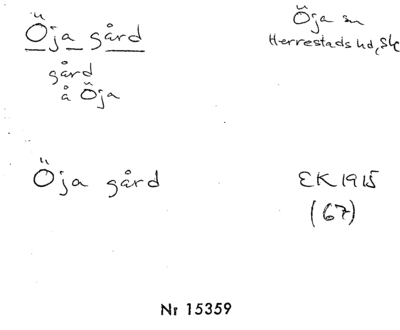 Öja gård
Öja sn
Herrestads hd, Sk
gård
å Öja
Öja gård
EK 1915
(67)
Nr 15359